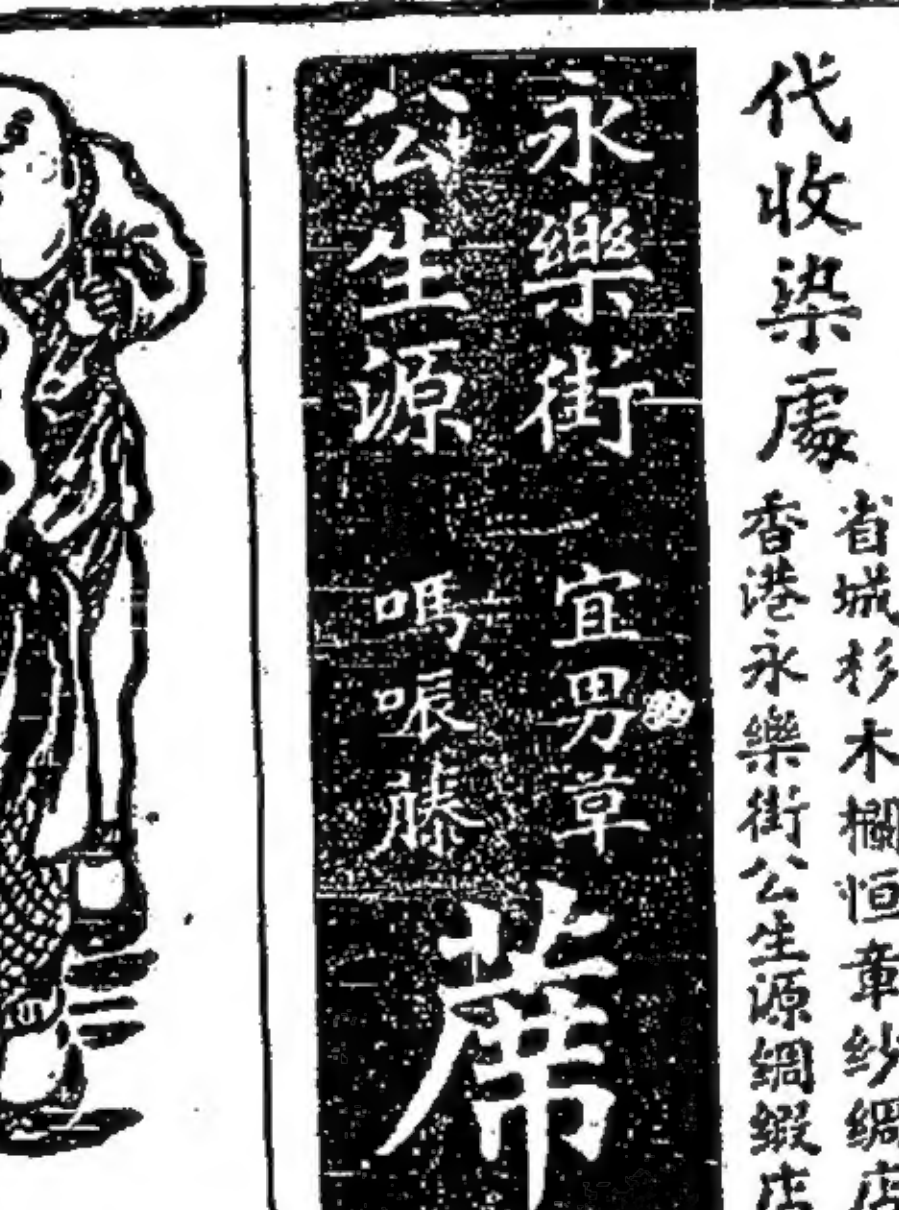 代收染處
省城杉木欄恒章紗綢店
香港永樂街公生源綢緞店
永樂街
公生源
宜男草
嗎㖘藤
蓆